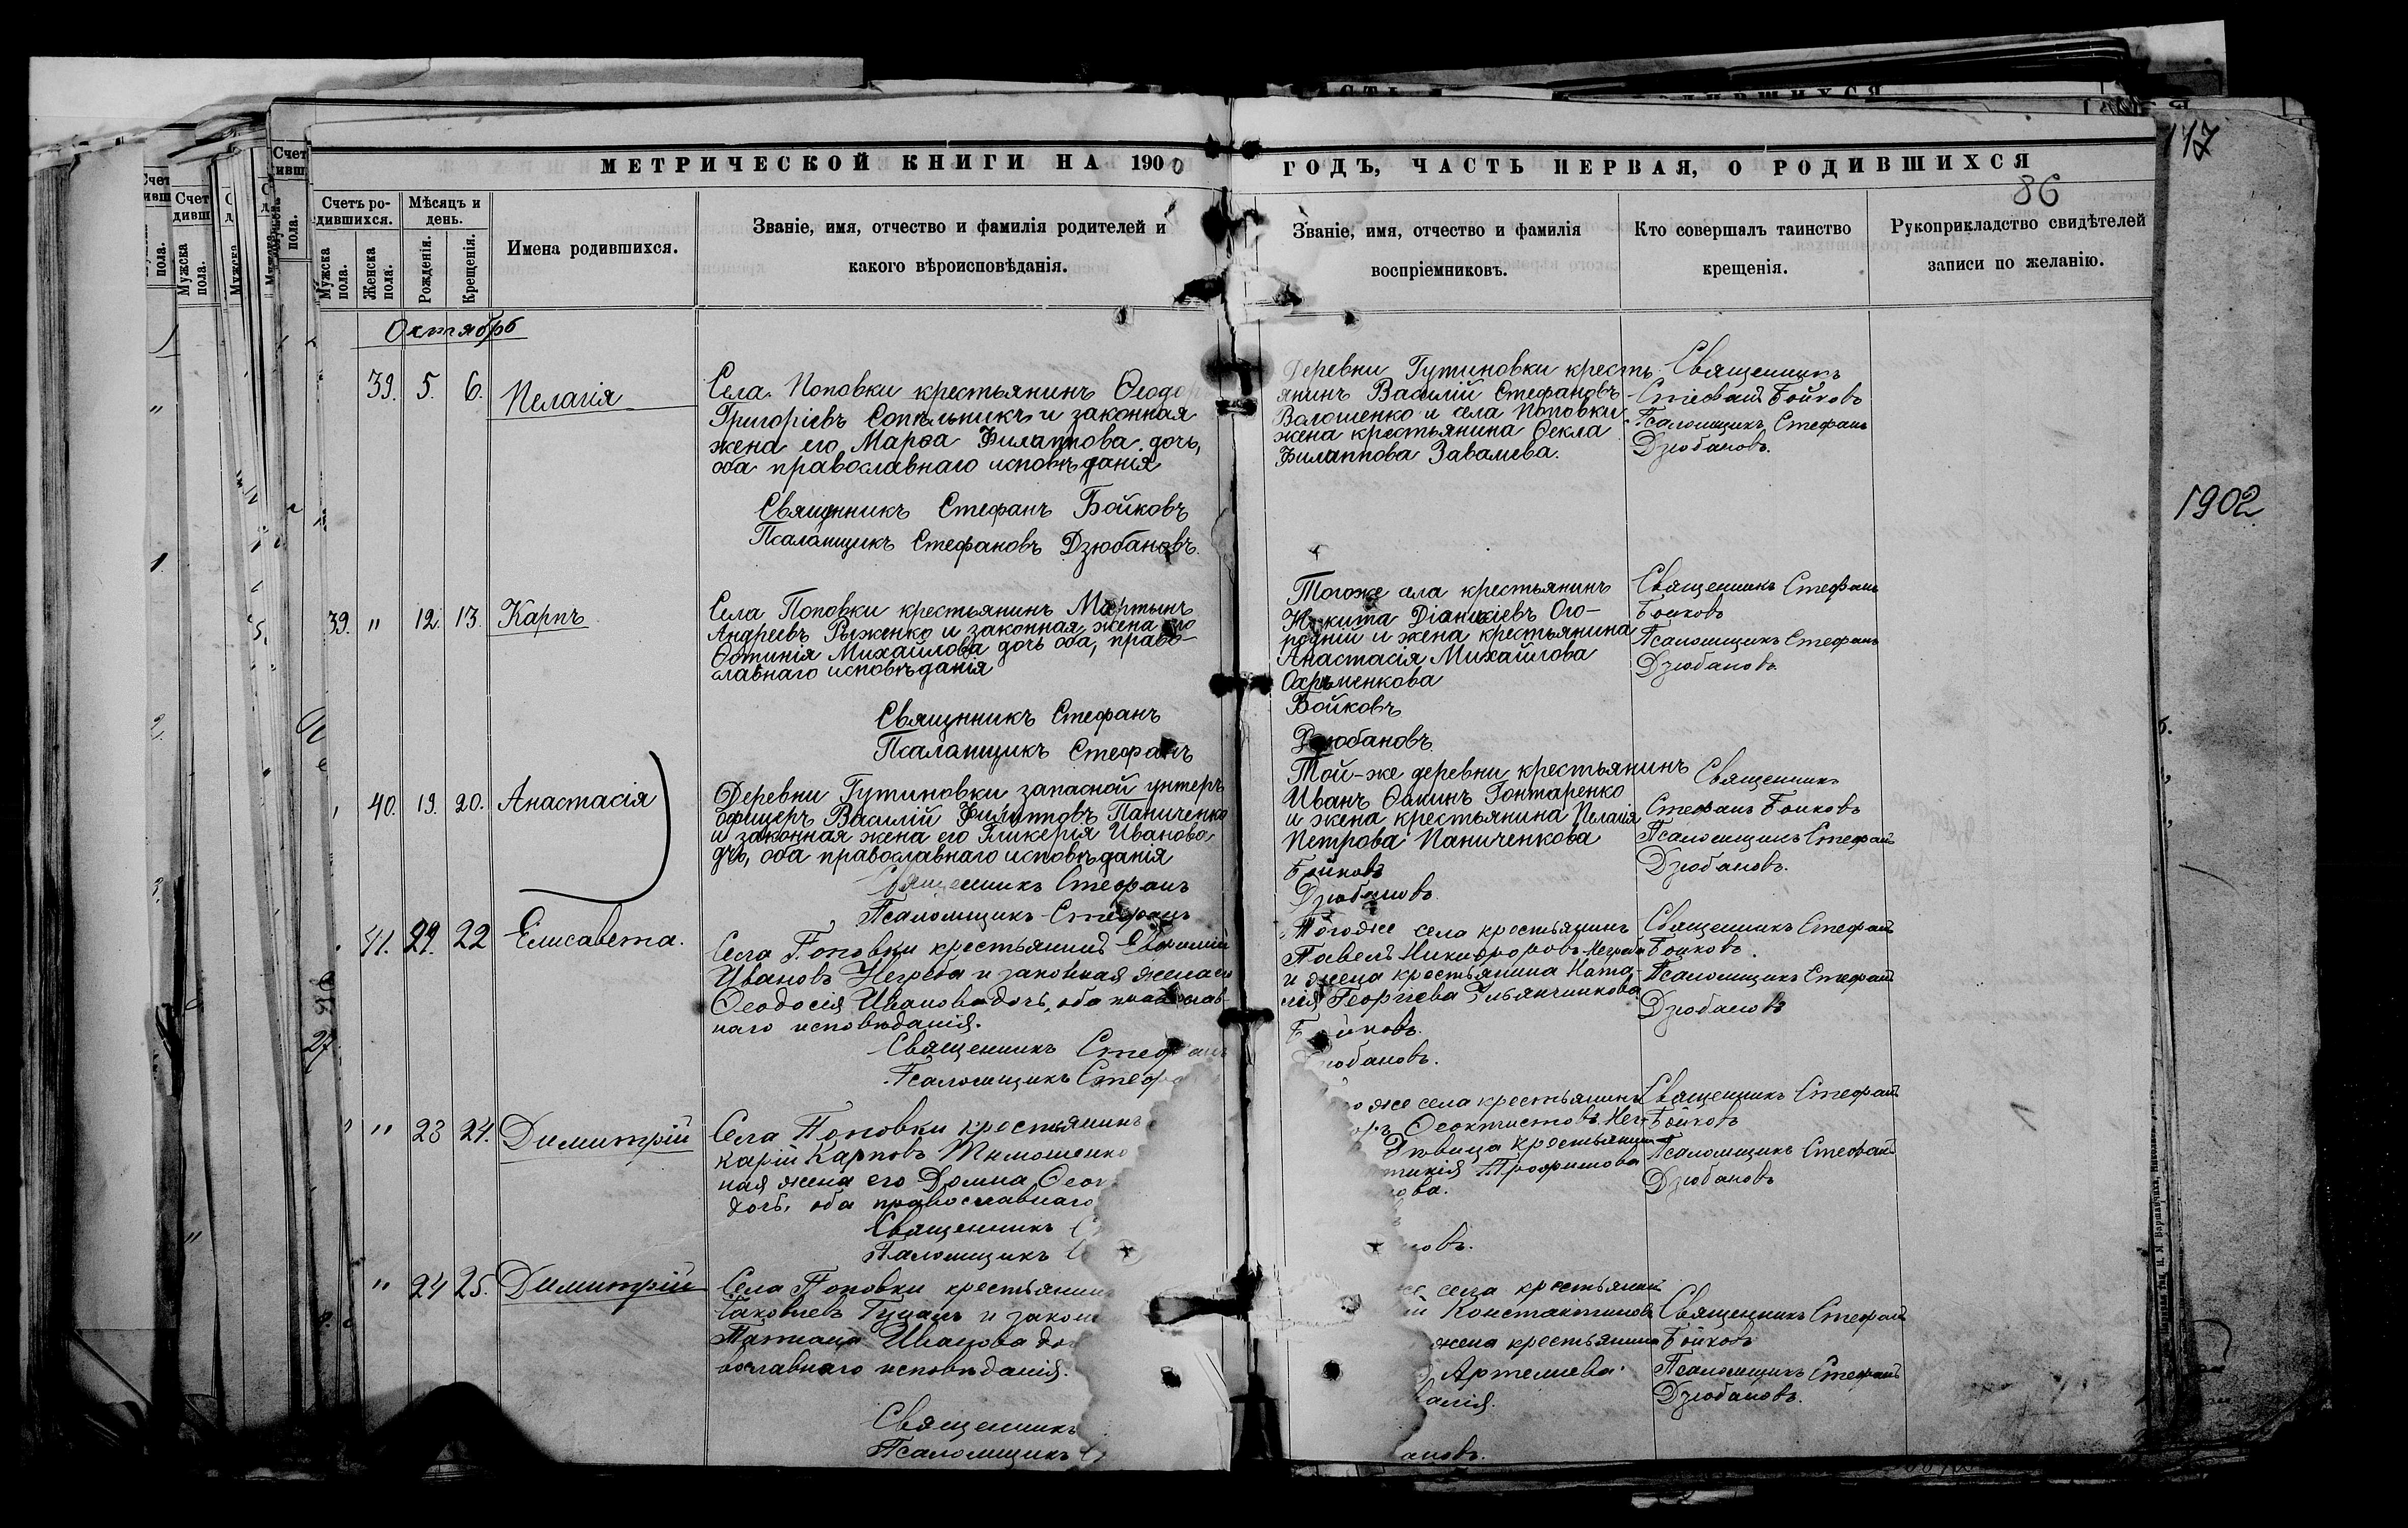 МЕТРИЧЕСКОЙ КНИГИ НА 1900
ГОДЪ, ЧАСТЬ ПЕРВАЯ, О РОДИВШИХСЯ
117
86
1902
Счетъ ро-
дившихся.
Мужска
пола.
Женска
пола.
Мѣсяцъ и
день.
Рожденія.
Крещенія.
Имена родившихся.
Званіе, имя, отчество и фамилія родителей и
какого вѣроисповѣданія.
Званіе, имя, отчество и фамилія
воспріемниковъ.
Кто совершалъ таинство
крещенія.
Рукоприкладство свидѣтелей
записи по желанію.
Октябрь
39. 5. 6. Пелагія
Села Поповки крестьянинъ Ѳеодор
Григоріевъ Сопѣльникъ и законная
жена его Марѳа Филиппова дочь,
оба православнаго исповѣданія
Священникъ Стефанъ Бойковъ
Псаломщикъ Стефановъ Дзюбановъ.
Деревни Гутиновки кресть-
янинъ Василій Стефановъ
Волошенко и села Поповки
жена крестьянина Ѳекла
Филиппова Завалиева.
Священникъ
Стефанъ Бойковъ
Псаломщикъ Стефанъ
Дзюбановъ.
39. " 12. 13. Карпъ
Села Поповки крестьянинъ Мартынъ
Андреевъ Рыженко и законная жена его
Ѳотинія Михайлова дочь оба, право-
славнаго исповѣданія
Священникъ Стефанъ
Псаломщикъ Стефанъ
Тогоже села крестьянинъ
Никита Діонисіевъ Ого-
родній и жена крестьянина
Анастасія Михайлова
Охрѣменкова
Бойковъ
Дзюбановъ.
Священникъ Стефанъ
Бойковъ
Псаломщикъ Стефанъ
Дзюбановъ.
40. 19. 20. Анастасія
Деревни Гутиновки запасной унтеръ
офицеръ Василій Филипповъ Паниченко
и законная жена его Гликерія Иванова
дчь, оба православнаго исповѣданія
Священникъ Стефанъ
Псаломщикъ Стефанъ
Той-же деревни крестьянинъ
Иванъ Гонтаренко
и жена крестьянина Пелагія
Петрова Паниченкова
Бойковъ
Дзюбановъ.
Священникъ
Стефанъ Бойковъ
Псаломщикъ Стефанъ
Дзюбановъ.
41. 22 Елисавета.
Села Поповки крестьянинъ Евфимій
Ивановъ Негреба и законная жена его
Ѳеодосія Иванова дочь, оба православ-
наго исповѣданія.
Священникъ Стефанъ
Псаломщикъ Стефа
Тогоже села крестьянинъ
Павелъ Никифоровъ Негреба
и жена крестьянина Ната-
лія Георгіева
Бойковъ.
юбановъ.
Священникъ Стефанъ
Бойковъ.
Псаломщикъ Стефанъ
Дзюбановъ
" 23 24. Димитрій
Села Поповки крестьянинъ
карій Карповъ Тимошенко
ная жена его Домна Ѳеок
дочь, оба православнаго
Священникъ
Псаломщикъ
оже села крестьянинъ
Ѳеоктистовъ Нег-
вдовица крестьянина
Трофимова
ова.
новъ.
Священникъ Стефанъ
Бойковъ
Псаломщикъ Стефанъ
Дзюбановъ
" 24 25. Димитрій
Села Поповки крестьянин
Яковлевъ Гуцалъ и закон
Татіана Иванова до
вославнаго исповѣданія.
Священникъ
Псаломщикъ
села крестьянинъ
Константиновъ
жена крестьянина
Артемиева
валія.
ановъ.
Священникъ Стефанъ
Бойковъ
Псаломщикъ Стефанъ
Дзюбановъ.